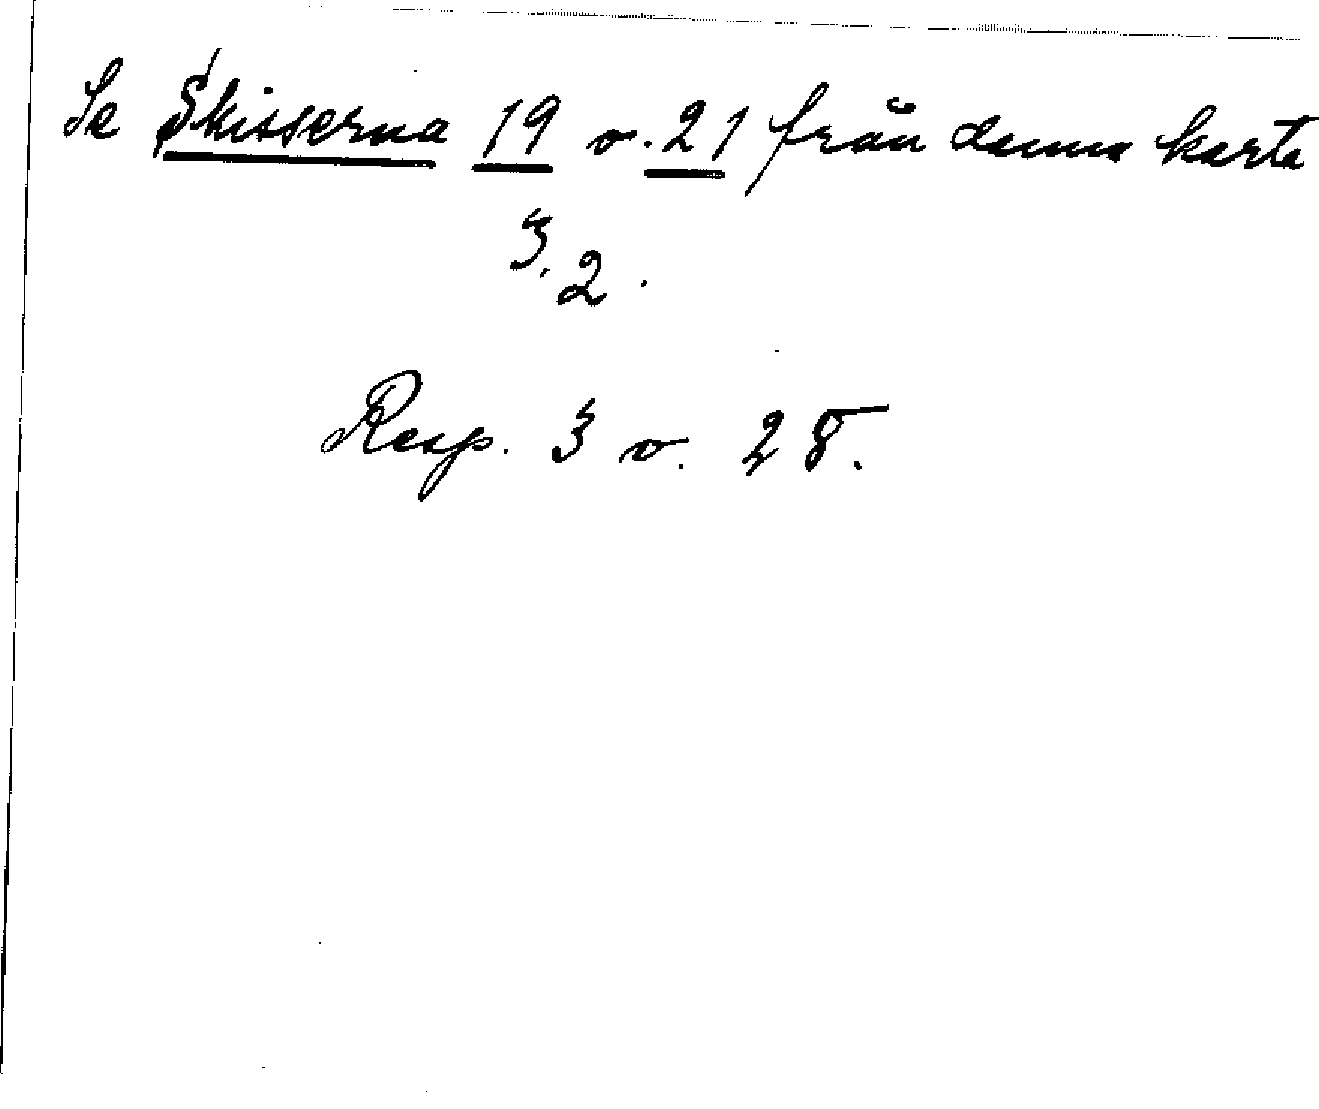 Se Skisserna 19 o. 21 från denna karta
3.2.
Resp. 3 o. 28.